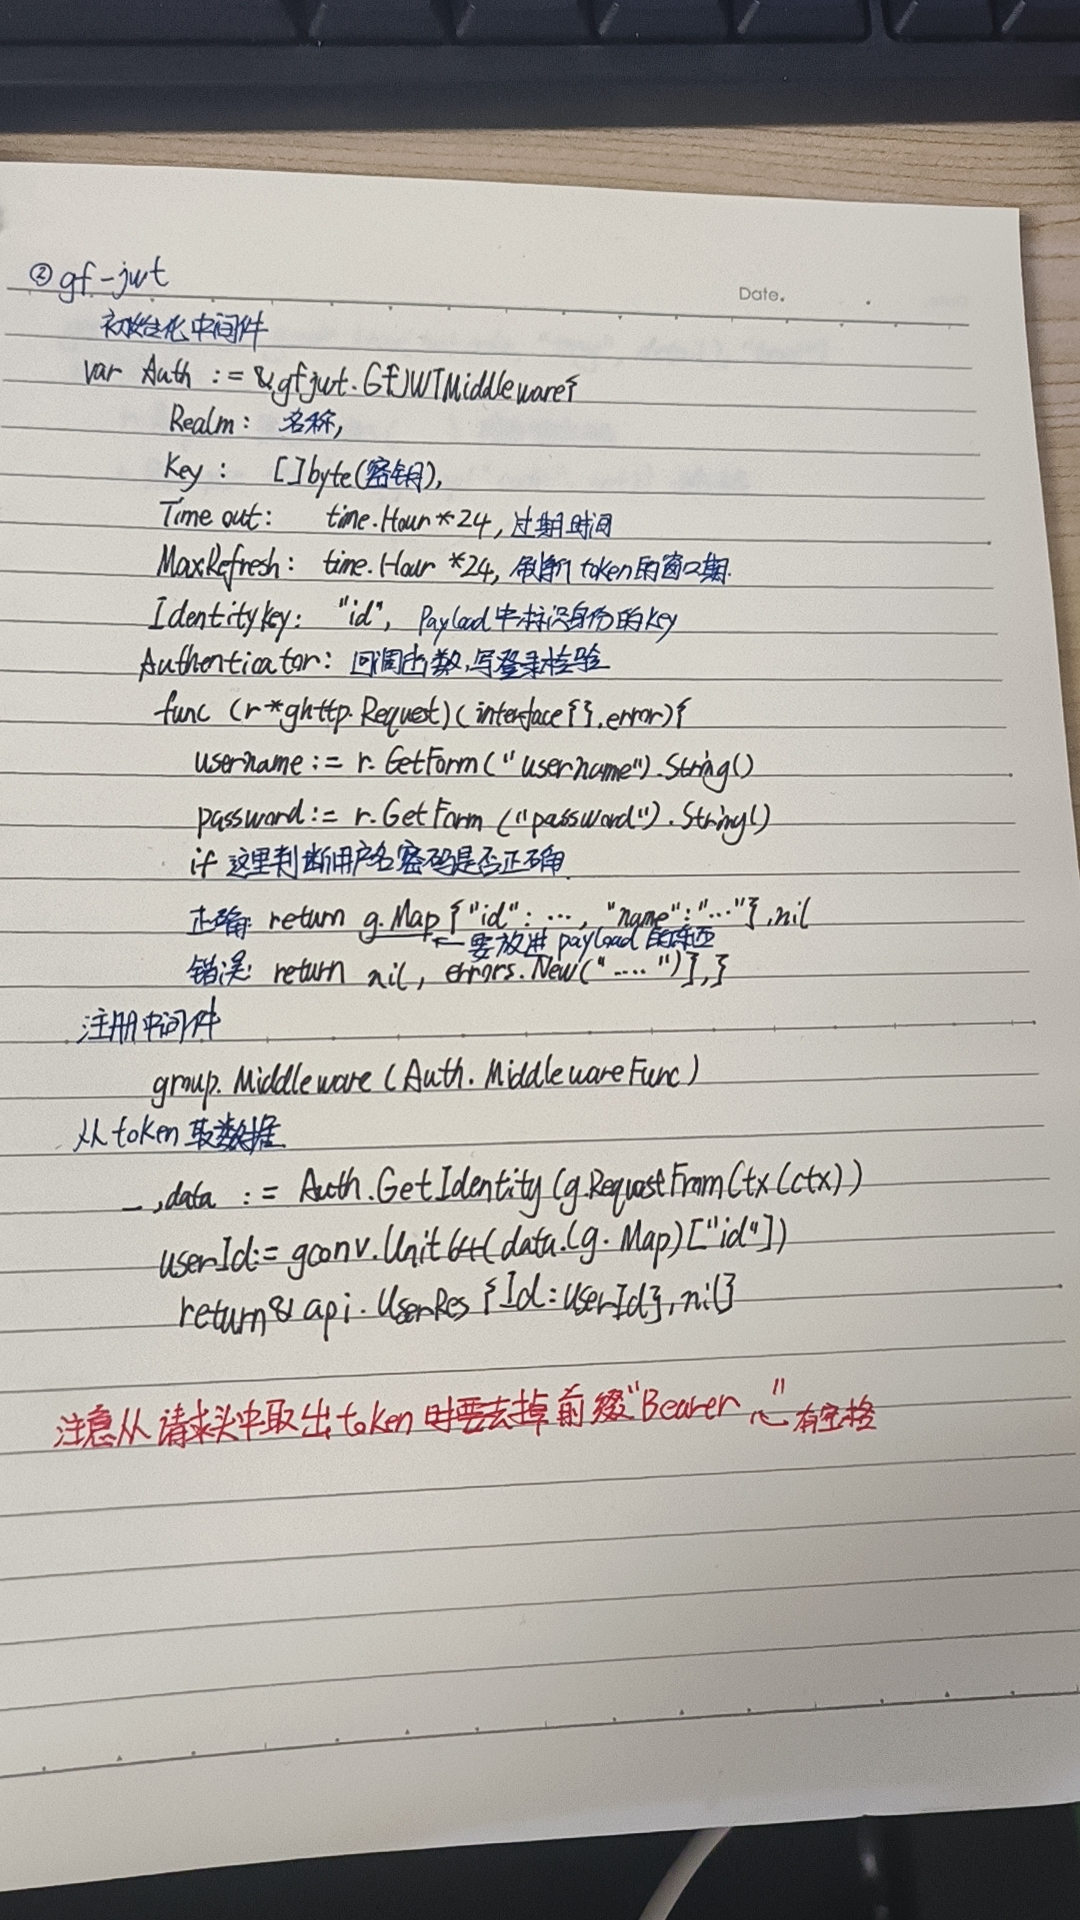 ②gf-jwt
Date.
初始化中间件
var Auth := &gfjwt.GfJWTMiddleware{
Realm: 名称,
Key: []byte(密钥),
Time out: time.Hour*24, 过期时间
MaxRefresh: time.Hour *24, 刷新token的窗口期.
Identitykey: "id", Payload中标识身份的key
Authenticator: 回调函数,写登录检验
func (r*ghttp.Request)(interface{},error){
username := r.GetForm("username").String()
password := r.GetForm ("password").String()
if 这里判断用户名密码是否正确
正确: return g.Map{"id": ..., "name":"..."},nil
←要放进payload的东西
错误: return nil, errors.New("....")},}
注册中间件
group.Middleware (Auth.MiddlewareFunc)
从token取数据
_,data := Auth.GetIdentity(g.RequestFromCtx(ctx))
userId:= gconv.Unit64(data.(g.Map)["id"])
return& api.UserRes{Id:userId},nil}
注意从请求头中取出token时要去掉前缀"Bearer "
有空格